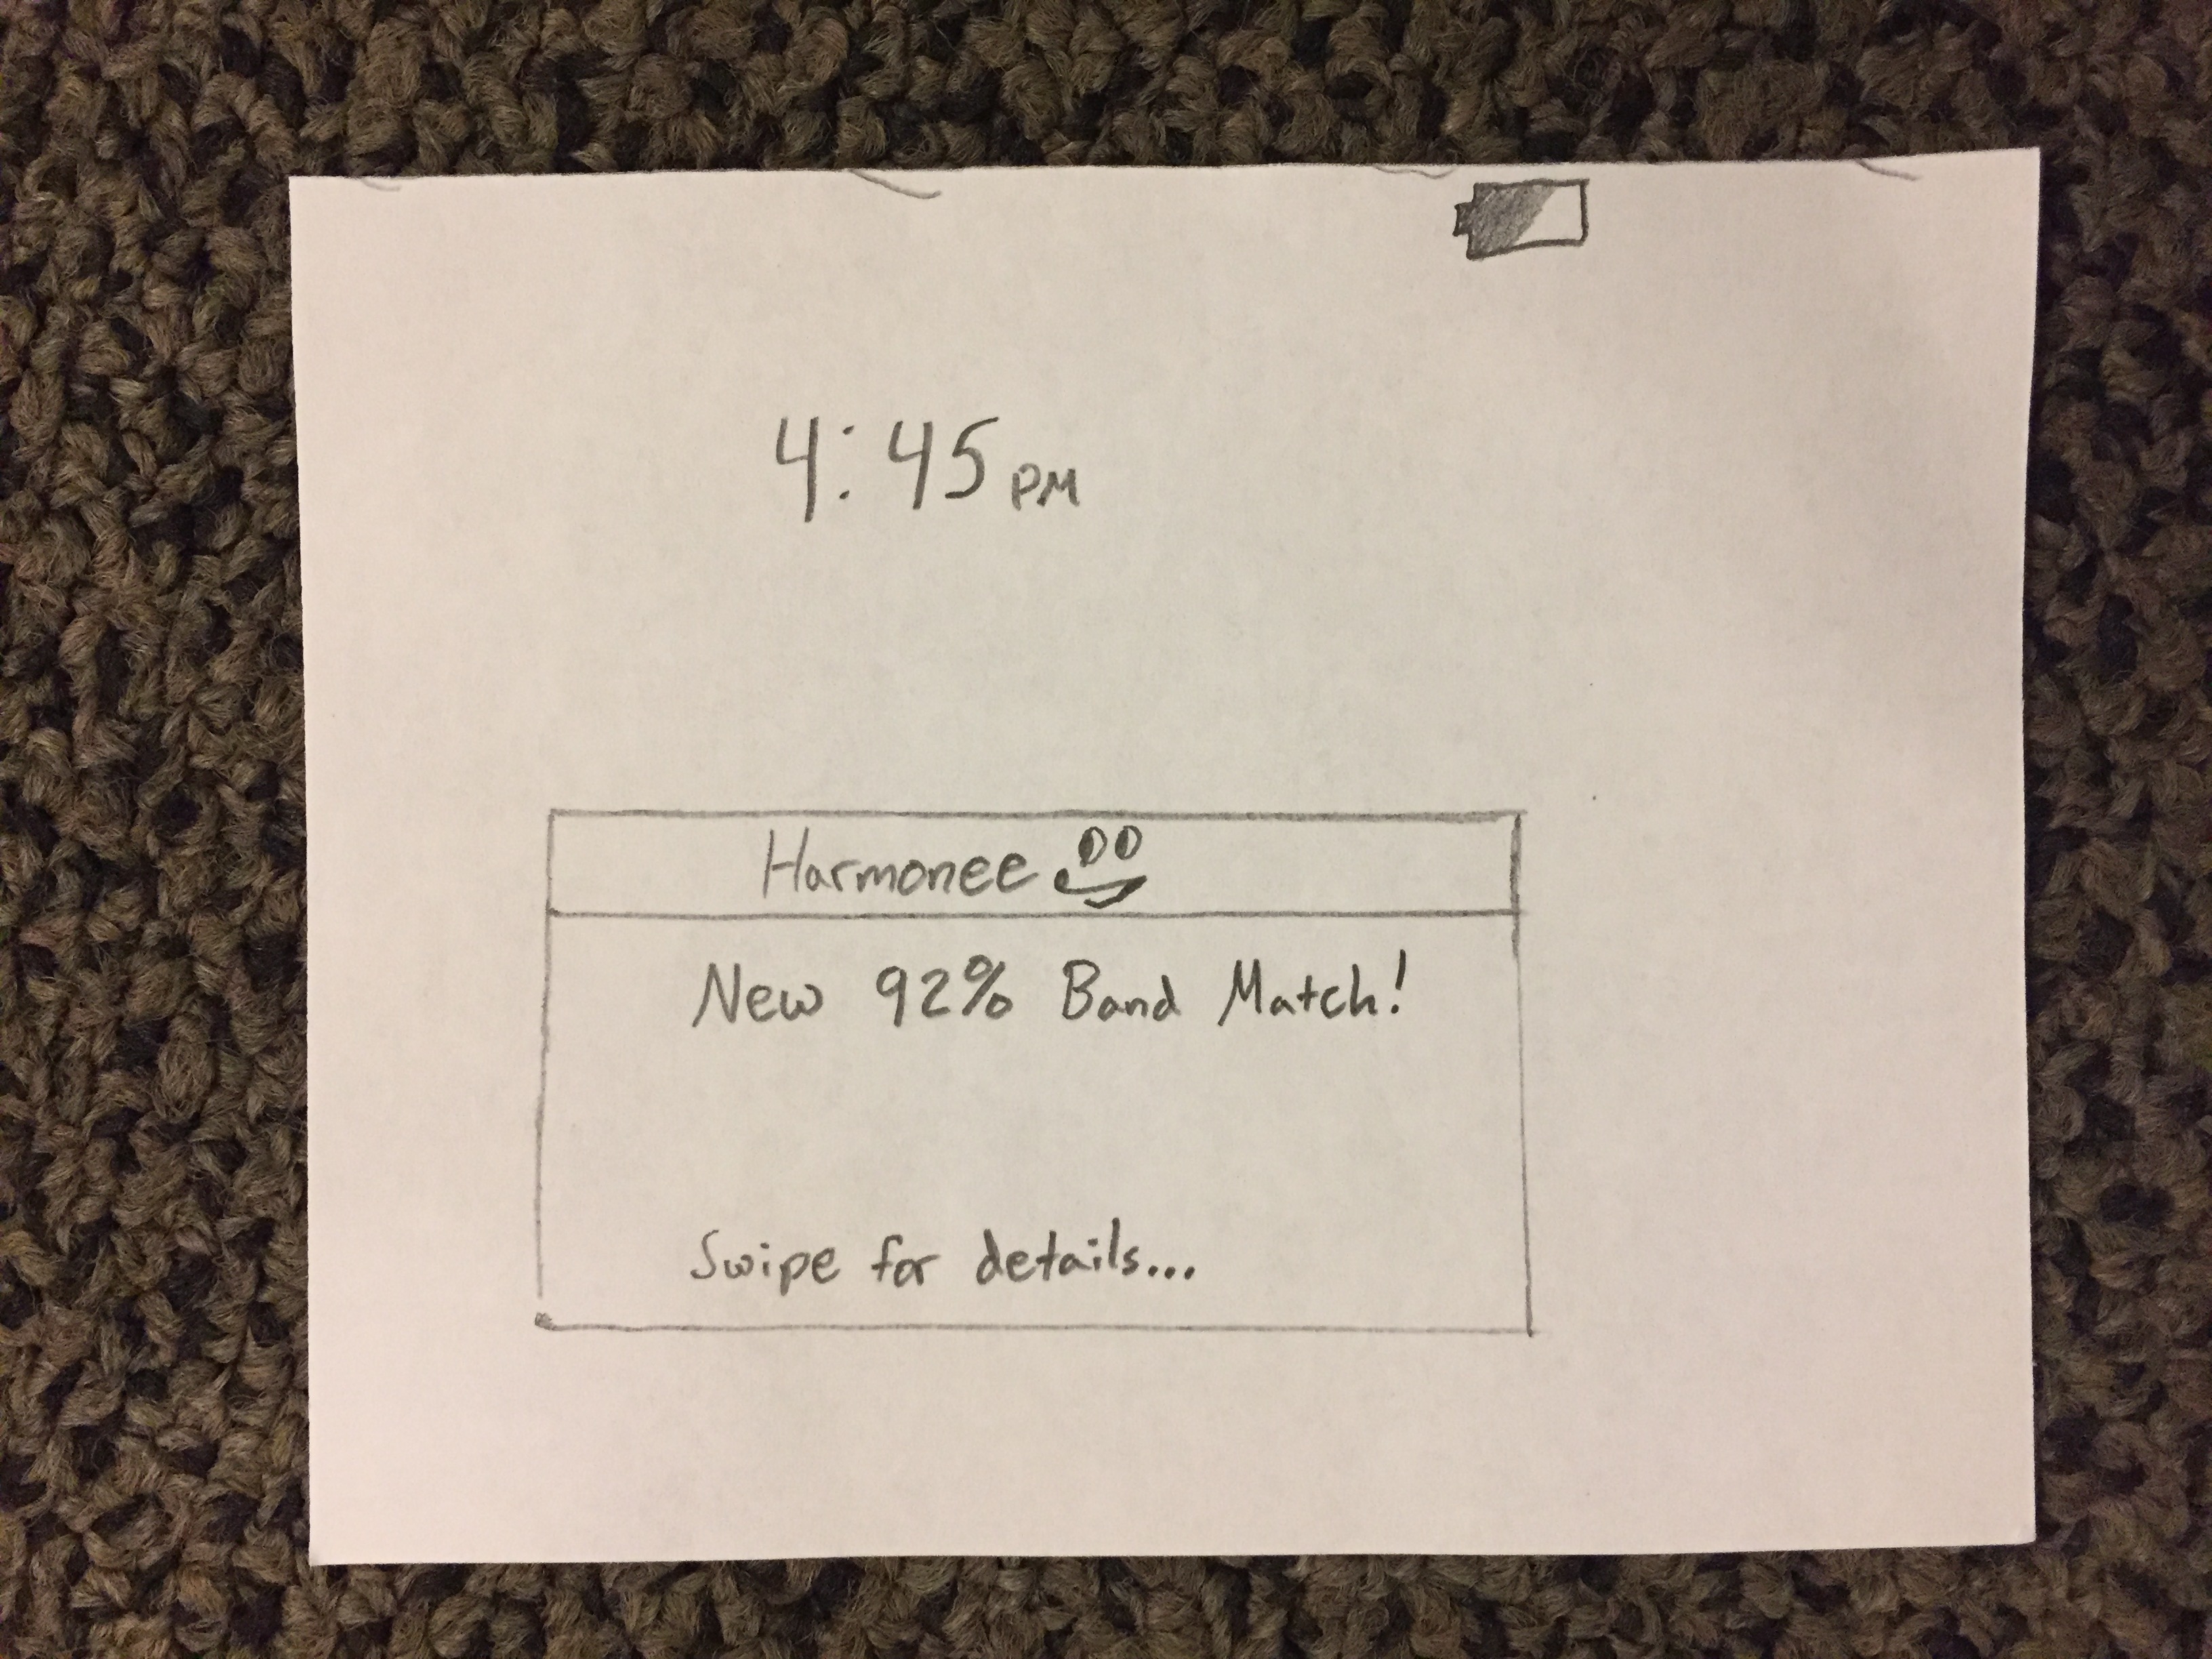 4:45 PM
Harmonee
New 92% Band Match!
Swipe for details....